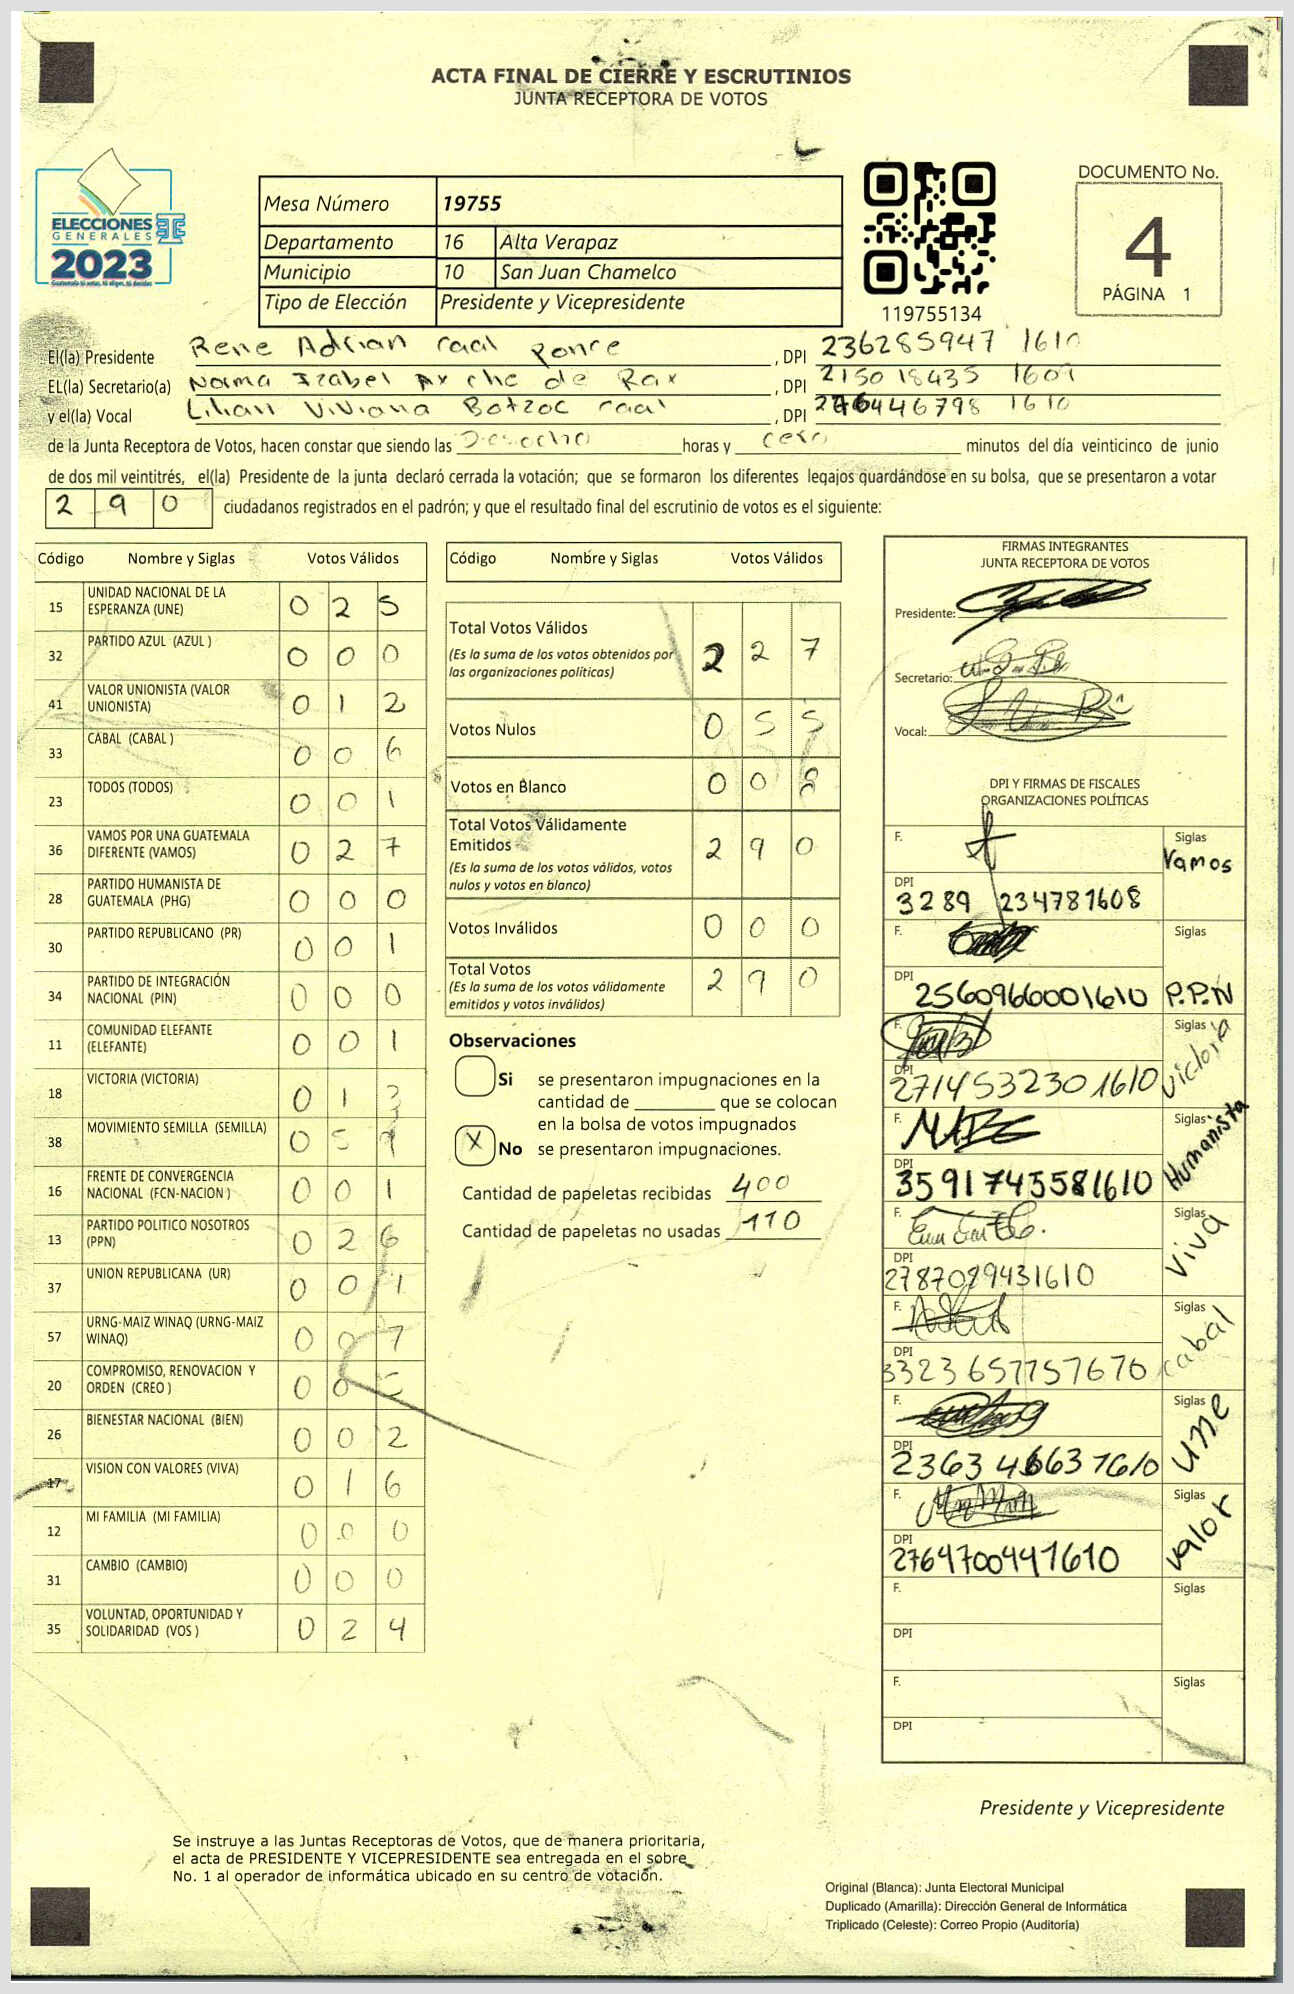 ACTA FINAL DE CIERRE Y ESCRUTINIOS
JUNTA RECEPTORA DE VOTOS
ELECCIONES
GENERALES
2023
Mesa Número 19755
Departamento 16 Alta Verapaz
Municipio 10 San Juan Chamelco
Tipo de Elección Presidente y Vicepresidente
119755134
DOCUMENTO No.
4
PÁGINA 1
El(la) Presidente Rene Adrian caal Ponce , DPI 236285947 1610
EL(la) Secretario(a) Norma Izabel Ax che de Rax , DPI 215018435 1609
y el(la) Vocal Lilian Viviana Botzoc caal , DPI 446798 1610
de la Junta Receptora de Votos, hacen constar que siendo las horas y cero minutos del día veinticinco de junio
de dos mil veintitrés, el(la) Presidente de la junta declaró cerrada la votación; que se formaron los diferentes legajos guardándose en su bolsa, que se presentaron a votar
2 9 0 ciudadanos registrados en el padrón; y que el resultado final del escrutinio de votos es el siguiente:
Código Nombre y Siglas Votos Válidos
15 UNIDAD NACIONAL DE LA ESPERANZA (UNE) 0 2 5
32 PARTIDO AZUL (AZUL ) 0 0 0
41 VALOR UNIONISTA (VALOR UNIONISTA) 0 1 2
33 CABAL (CABAL ) 0 0 6
23 TODOS (TODOS) 0 0 1
36 VAMOS POR UNA GUATEMALA DIFERENTE (VAMOS) 0 2 7
28 PARTIDO HUMANISTA DE GUATEMALA (PHG) 0 0 0
30 PARTIDO REPUBLICANO (PR) 0 0 1
34 PARTIDO DE INTEGRACIÓN NACIONAL (PIN) 0 0 0
11 COMUNIDAD ELEFANTE (ELEFANTE) 0 0 1
18 VICTORIA (VICTORIA) 0 1 3
38 MOVIMIENTO SEMILLA (SEMILLA) 0 5 9
16 FRENTE DE CONVERGENCIA NACIONAL (FCN-NACION ) 0 0 1
13 PARTIDO POLITICO NOSOTROS (PPN) 0 2 6
37 UNION REPUBLICANA (UR) 0 0 1
57 URNG-MAIZ WINAQ (URNG-MAIZ WINAQ) 0 0 7
20 COMPROMISO, RENOVACION Y ORDEN (CREO ) 0 0
26 BIENESTAR NACIONAL (BIEN) 0 0 2
17 VISION CON VALORES (VIVA) 0 1 6
12 MI FAMILIA (MI FAMILIA) 0 0 0
31 CAMBIO (CAMBIO) 0 0 0
35 VOLUNTAD, OPORTUNIDAD Y SOLIDARIDAD (VOS ) 0 2 4
Código Nombre y Siglas Votos Válidos
Total Votos Válidos 2 2 7
(Es la suma de los votos obtenidos por
las organizaciones políticas)
Votos Nulos 0 5 5
Votos en Blanco 0 0 8
Total Votos Válidamente
Emitidos 2 9 0
(Es la suma de los votos válidos, votos
nulos y votos en blanco)
Votos Inválidos 0 0 0
Total Votos 2 9 0
(Es la suma de los votos válidamente
emitidos y votos inválidos)
Observaciones
Si se presentaron impugnaciones en la
cantidad de ________ que se colocan
en la bolsa de votos impugnados
X No se presentaron impugnaciones.
Cantidad de papeletas recibidas 400
Cantidad de papeletas no usadas 110
FIRMAS INTEGRANTES
JUNTA RECEPTORA DE VOTOS
Presidente:
Secretario:
Vocal:
DPI Y FIRMAS DE FISCALES
ORGANIZACIONES POLÍTICAS
F. Siglas Vamos
DPI 3289 234781608
F. Siglas P.P.N
DPI 2560966001610
F. Siglas Victoria
DPI 2714532301610
F. Siglas Humanista
DPI 3591745581610
F. Siglas Viva
DPI 2787089431610
F. Siglas cabal
DPI 3323 657757670
F. Siglas une
DPI 2363
F. Siglas valor
DPI 2764700441610
F. Siglas
DPI
F. Siglas
DPI
Presidente y Vicepresidente
Se instruye a las Juntas Receptoras de Votos, que de manera prioritaria,
el acta de PRESIDENTE Y VICEPRESIDENTE sea entregada en el sobre
No. 1 al operador de informática ubicado en su centro de votación.
Original (Blanca): Junta Electoral Municipal
Duplicado (Amarilla): Dirección General de Informática
Triplicado (Celeste): Correo Propio (Auditoría)